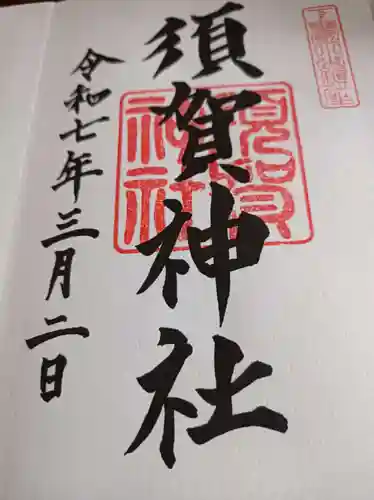 須賀神社
令和七年三月二日
須賀神社